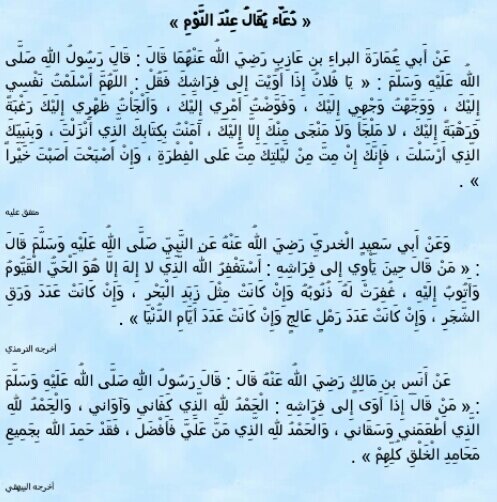 « دُعَاء يُقَالُ عِنْدَ النَّوْمِ »
عَنْ أبي عُمَارَةَ البراءِ بنِ عَازِبٍ رَضِيَ اللهُ عَنْهُمَا قَالَ : قالَ رَسُولُ اللهِ صَلَّى
اللهُ عَلَيْهِ وَسَلَّمَ : « يَا فُلانُ إذَا أوَيْتَ إِلَى فِرَاشِكَ فَقُلْ : اللَّهُمَّ أسْلَمْتُ نَفْسِي
إلَيْكَ ، وَوَجَّهْتُ وَجْهِي إلَيْكَ ، وَفَوَّضْتُ أمْرِي إلَيْكَ ، وَألْجَأتُ ظَهْرِي إلَيْكَ رَغْبَةً
وَرَهْبَةً إلَيْكَ ، لا مَلْجَأَ وَلا مَنْجَى مِنْكَ إلَّا إلَيْكَ ، آمَنْتُ بِكِتَابِكَ الَّذِي أنْزَلْتَ ، وَبِنَبِيِّكَ
الَّذِي أرْسَلْتَ ، فَإِنَّكَ إِنْ مِتَّ مِنْ لَيْلَتِكَ مِتَّ عَلَى الفِطْرَةِ ، وَإِنْ أصْبَحْتَ أصَبْتَ خَيْراً
» .
متفق عليه
وَعَنْ أبي سَعِيدٍ الْخُدرِيِّ رَضِيَ اللهُ عَنْهُ عَنِ النَّبِيِّ صَلَّى اللهُ عَلَيْهِ وَسَلَّمَ قَالَ
: « مَنْ قَالَ حِينَ يَأْوِي إلى فِرَاشِهِ : أَسْتَغْفِرُ اللهَ الَّذِي لا إلهَ إلَّا هُوَ الْحَيُّ الْقَيُّومُ
وَأتُوبُ إلَيْهِ ، غُفِرَتْ لَهُ ذُنُوبُهُ وَإنْ كَانَتْ مِثْلَ زَبَدِ الْبَحْرِ ، وَإنْ كَانَتْ عَدَدَ وَرَقِ
الشَّجَرِ ، وَإنْ كَانَتْ عَدَدَ رَمْلِ عَالِجٍ وَإنْ كَانَتْ عَدَدَ أيَّامِ الدُّنْيَا » .
أخرجه الترمذي
عَنْ أنَسِ بنِ مَالِكٍ رَضِيَ اللهُ عَنْهُ قَالَ : قَالَ رَسُولُ اللهِ صَلَّى اللهُ عَلَيْهِ وَسَلَّمَ
: « مَنْ قَالَ إذَا أوَى إلى فِرَاشِهِ : الْحَمْدُ للهِ الَّذِي كَفَانِي وَآوَانِي ، وَالْحَمْدُ للهِ
الَّذِي أطْعَمَنِي وَسَقَانِي ، وَالْحَمْدُ للهِ الَّذِي مَنَّ عَلَيَّ فَأفْضَلَ ، فَقَدْ حَمِدَ اللهَ بِجَمِيعِ
مَحَامِدِ الْخَلْقِ كُلِّهِمْ » .
أخرجه البيهقي